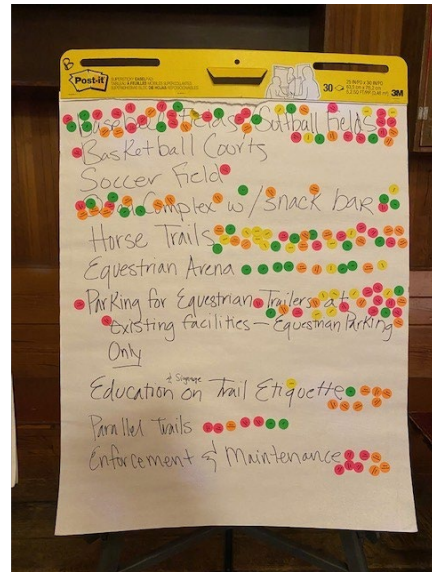 B
Post-it
30
3M
Baseball Fields Softball Fields
Basketball Courts
Soccer Field
Complex w/ snack bar
Horse Trails
Equestrian Arena
Parking for Equestrian Trailers at
Existing facilities — Equestrian Parking
Only
& Signage
Education on Trail Etiquette
Parallel Trails
Enforcement & Maintenance